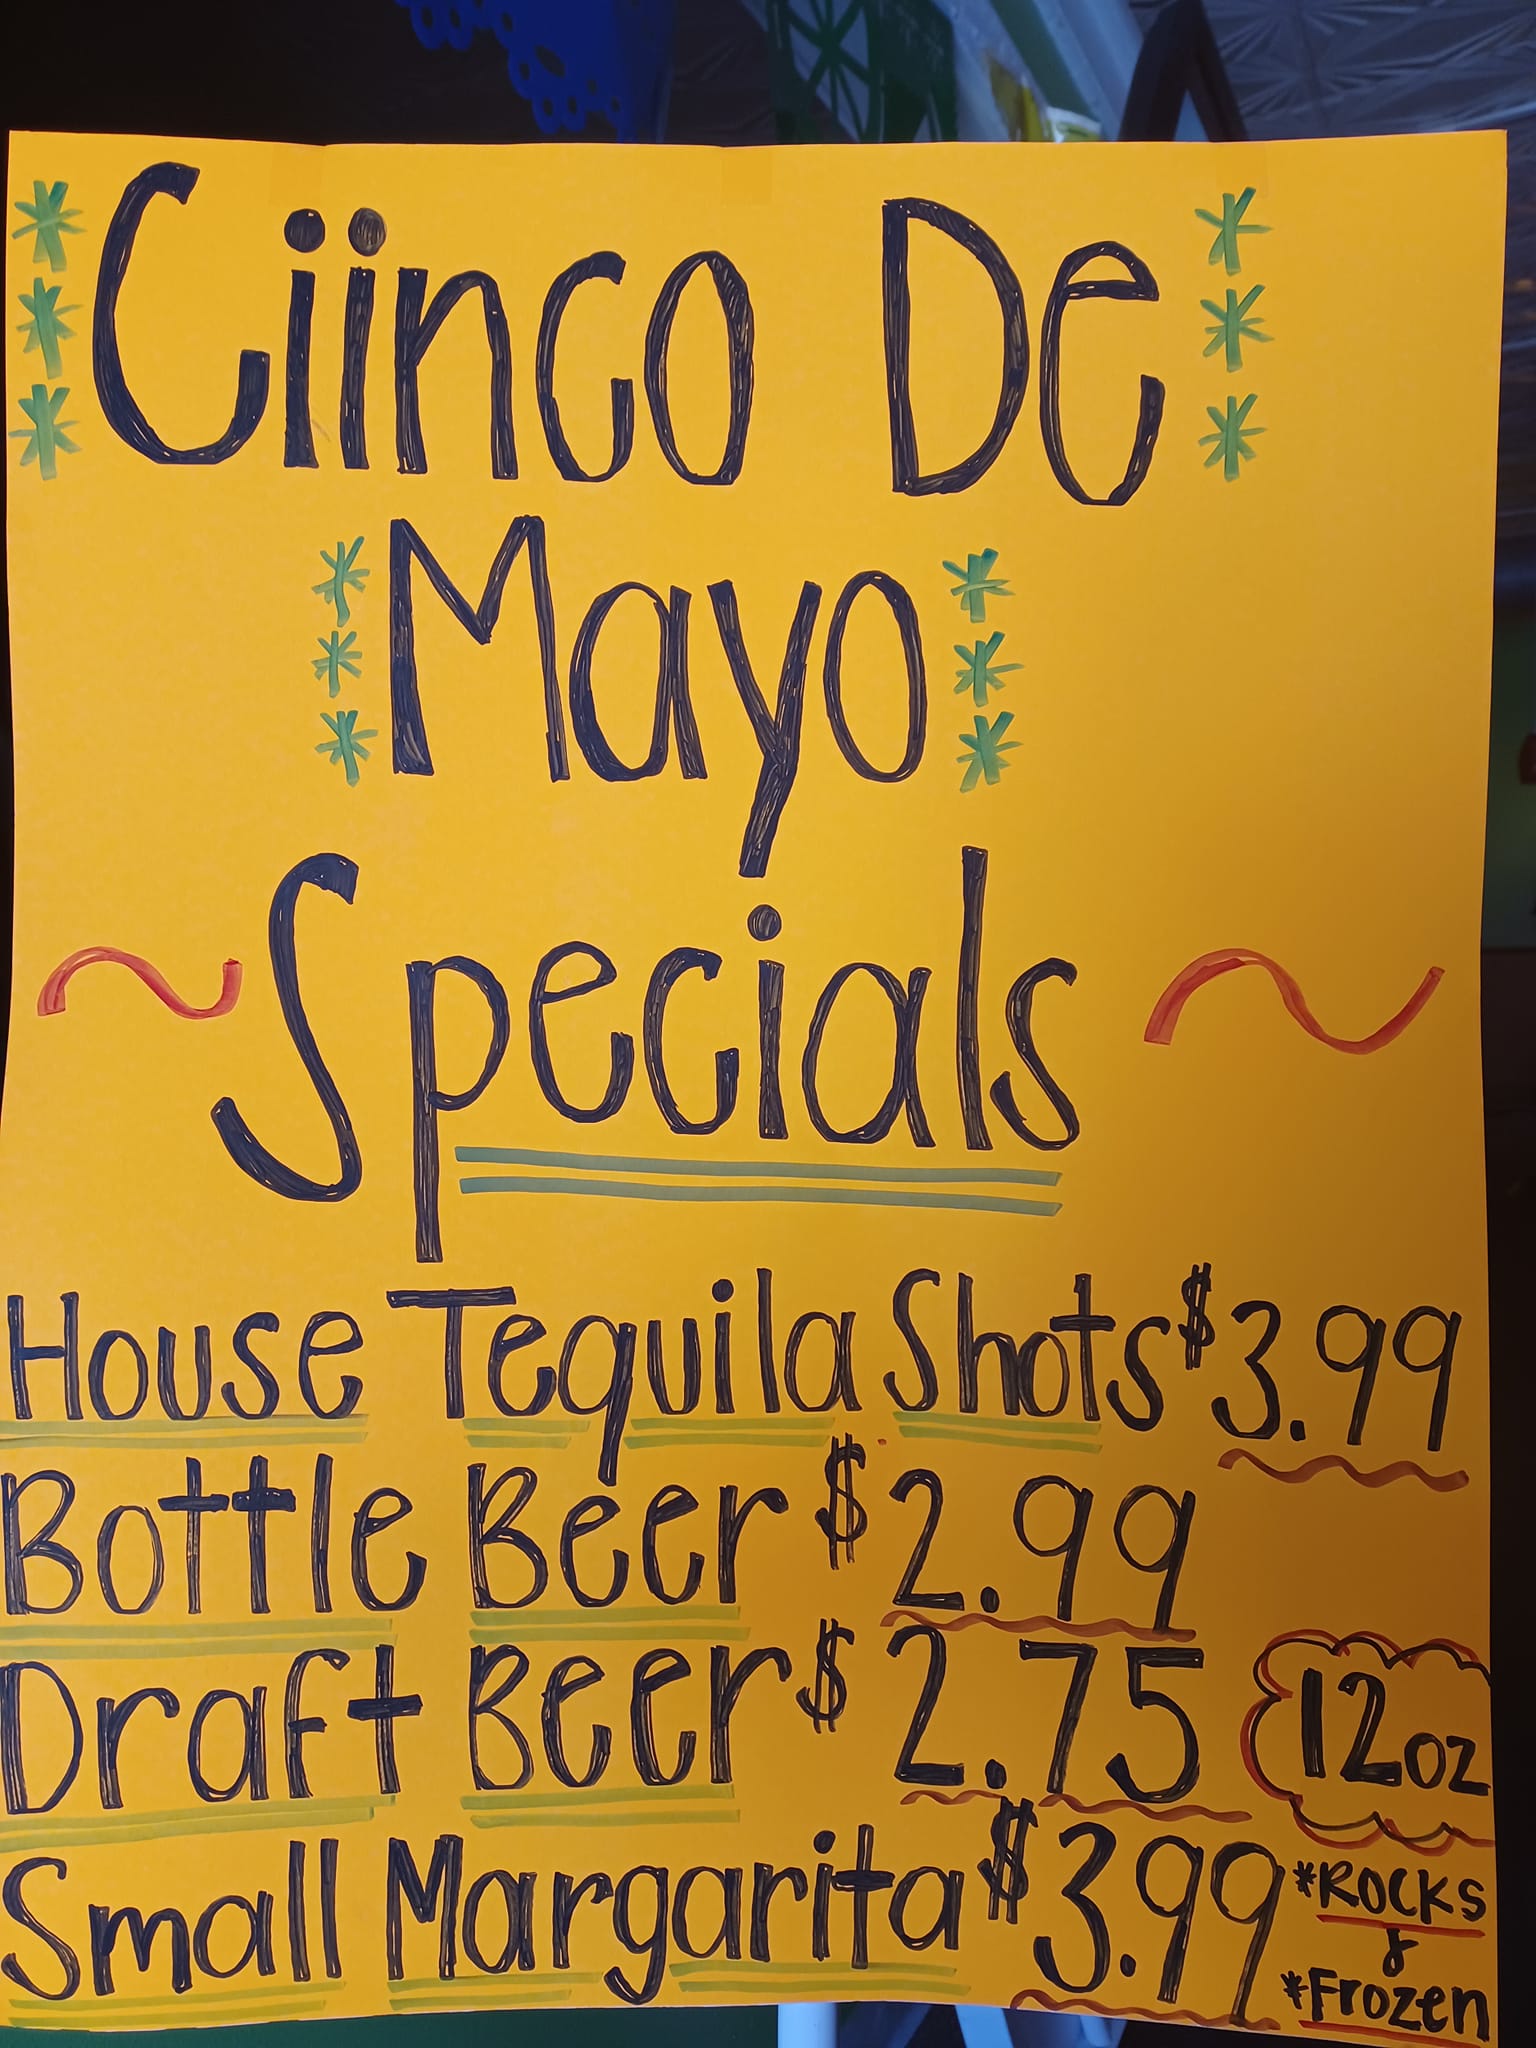 Ciinco De
Mayo
~ Specials ~
House Tequila Shots $3.99
Bottle Beer $2.99
Draft Beer $2.75 12oz
Small Margarita $3.99 *Rocks
y
*Frozen